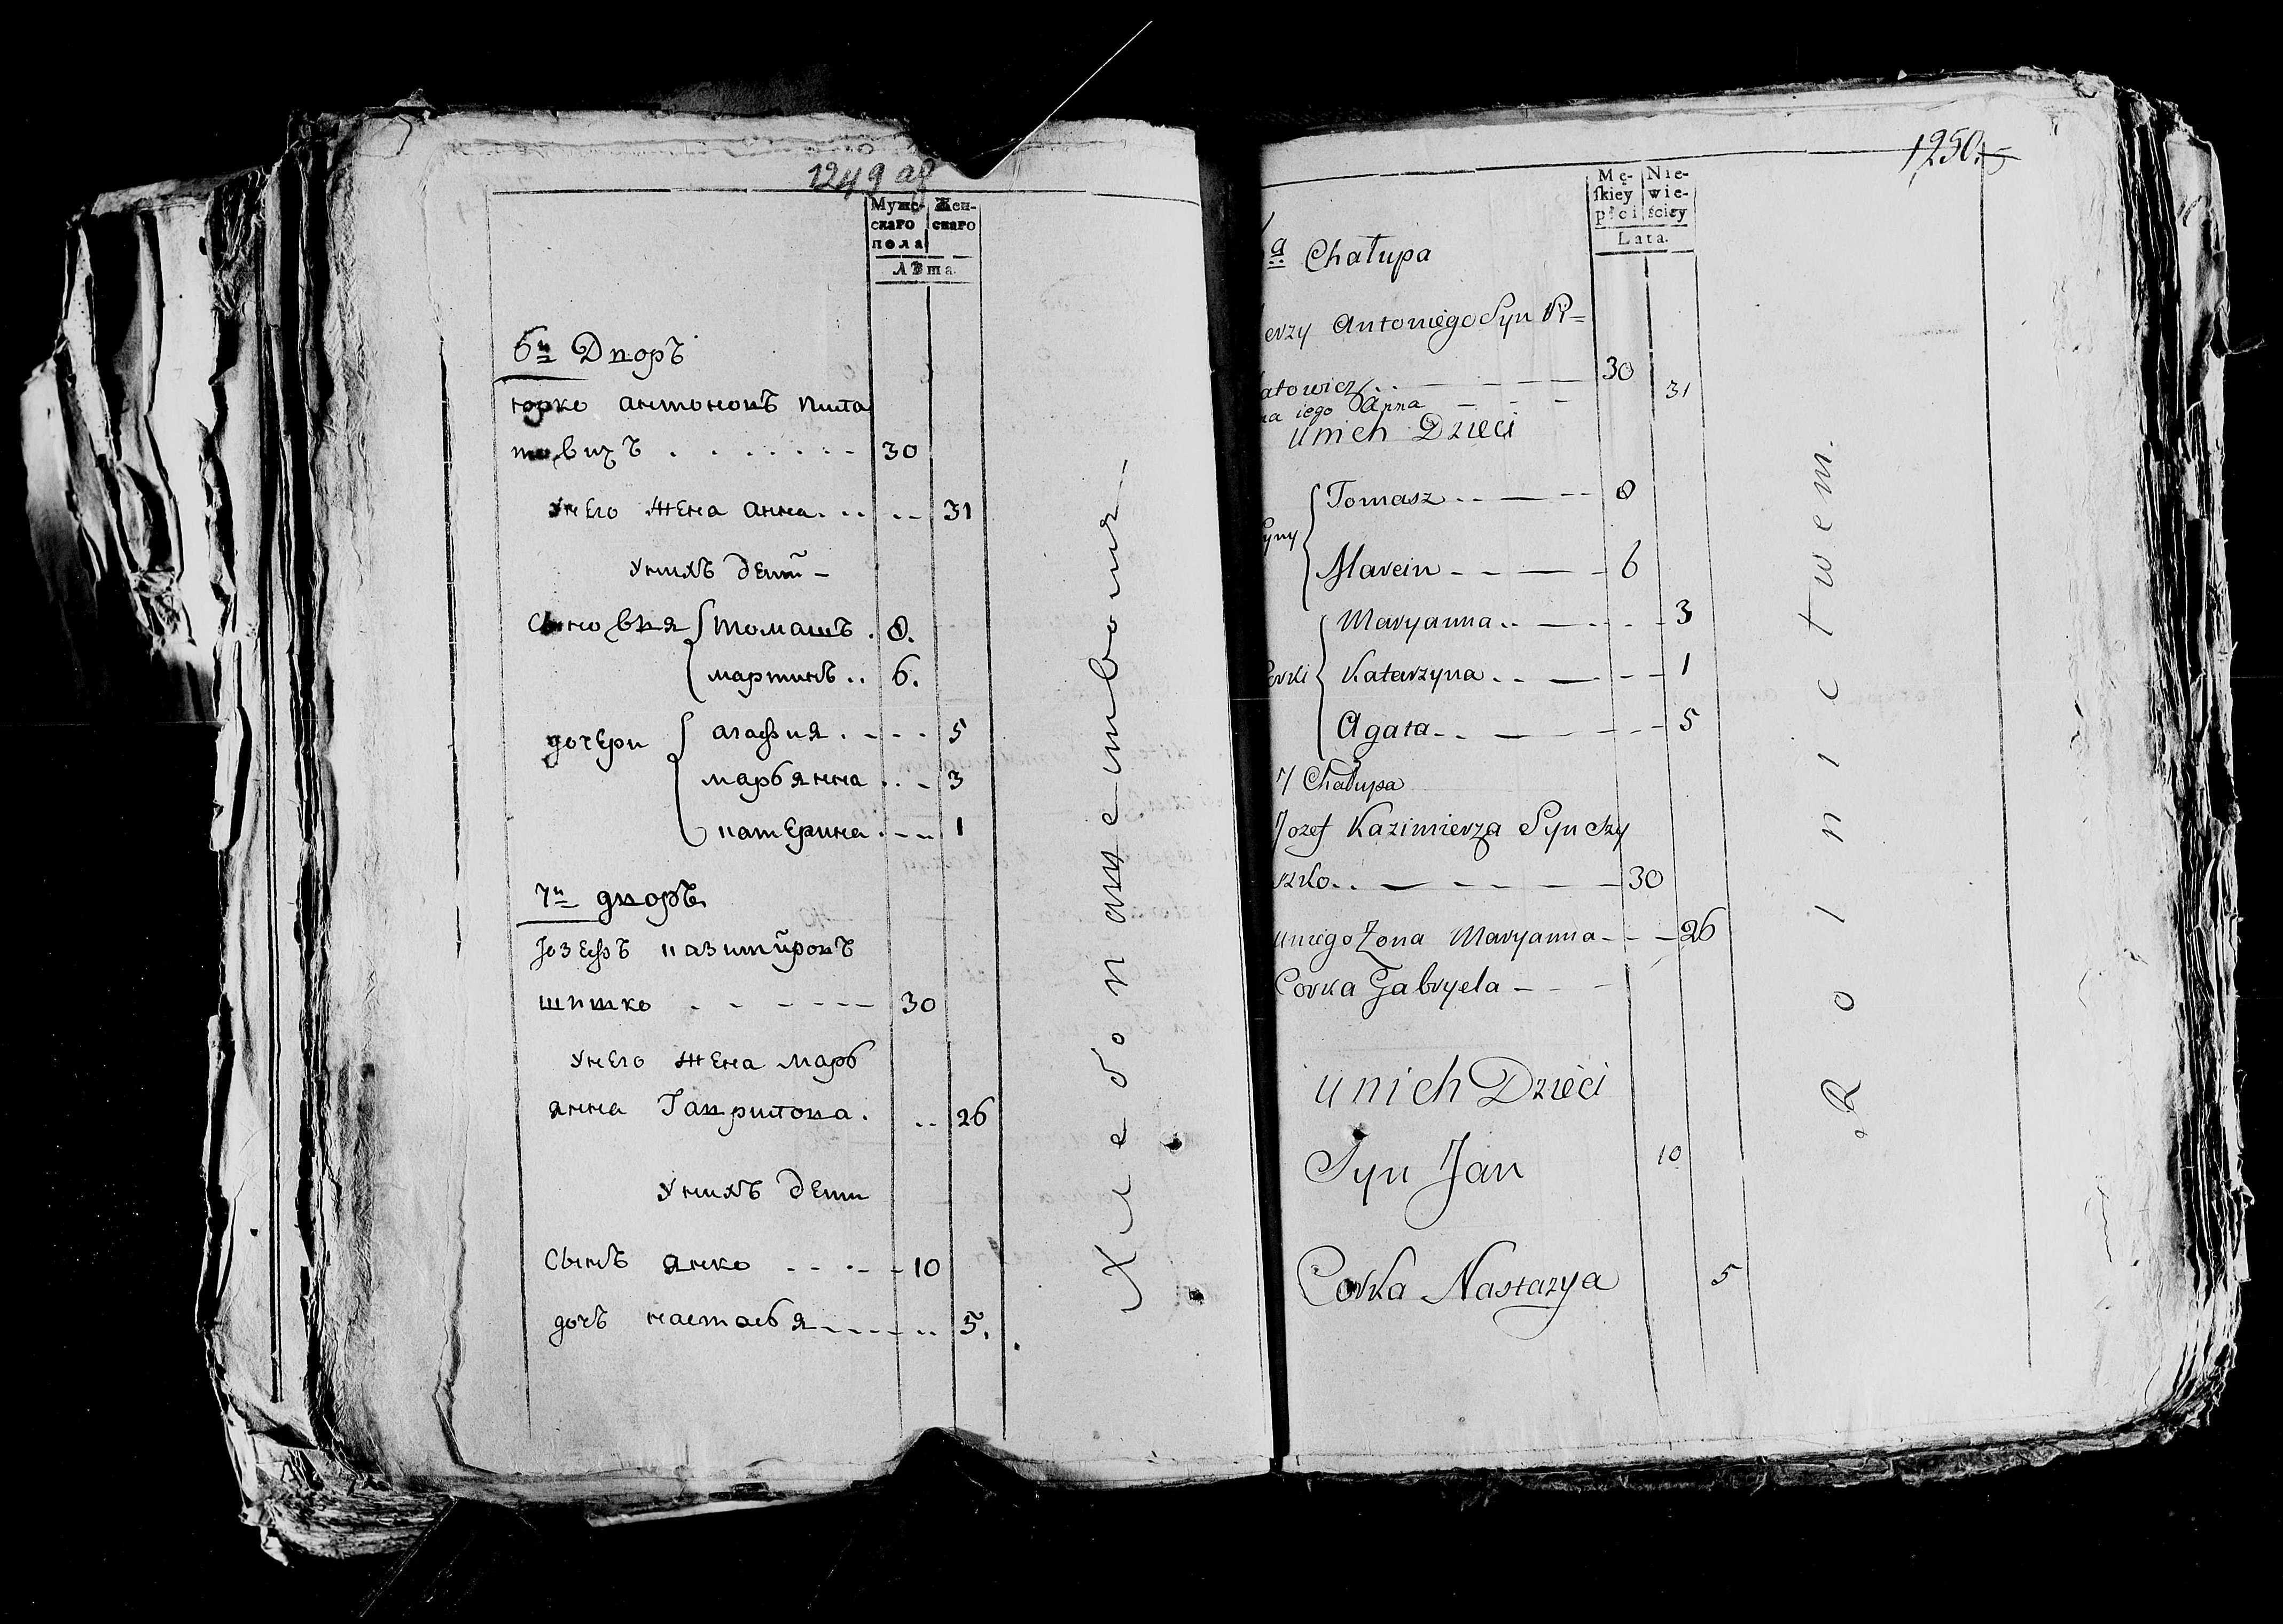 1249 об
Мужс- Жен-
скаго скаго
пола
Лѣта.
6й Дворъ
юрко антоновъ пила
товичъ . . . . . . . 30
унего жена анна . . . . 31
унихъ дети
Сыновья томашъ . 8.
мартинъ . . 6.
дочери агафия . - - . 5
марьянна . . - 3
катерина . - - - 1
7й дворъ
Іозефъ казимировъ
шишко . - - - - - 30
унего жена марь
янна Гавршлова . . . 26
унихъ дети
Сынъ янко - - - - 10
дочь настасья - - - - . . 5.
Хлебопашеством
1250.
Mę- Nie-
ſkiey wie-
płci ściey
Lata.
a Chałupa
erzy Antoniego Syn Pi=
łatowicz . . - - - - 30
na iego Anna - - - 31
unich Dzieci
Syny Tomasz . . - - - 8
Marcin - - - - 6
Maryanna . . - - - 3
Corki Katarzyna . . - - - 1
Agata - . - - - 5
7 Chałupa
Jozef Kazimierza Syn Szy
szko . . - - - - 30
uniego Zona Maryanna - - - 26
Corka Gabryela - - -
unich Dzieci
Syn Jan 10
Corka Nastazya 5
Rolnictwem.